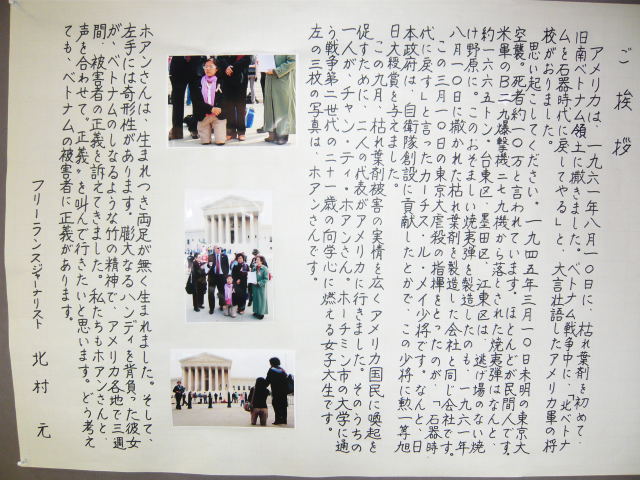 ご挨拶
アメリカは、一九六一年八月一〇日に、枯れ葉剤を初めて、
旧南ベトナム領土に撒きました。ベトナム戦争中に、「北ベトナ
ムを石器時代に戻してやる」と、大言壮語したアメリカ軍の将
校がおりました。
思い起こしてください。一九四五年三月一〇日未明の東京大
空襲。死者約一〇万と言われています。ほとんどが民間人です。
米軍のB二九爆撃機二七九機から落とされた焼夷弾はなんと、
約一六六五トン。台東区、墨田区、江東区は、逃げ場のない焼
け野原に。このおぞましい焼夷弾を製造したのも、一九六一年
八月一〇日に撒かれた枯れ葉剤を製造した会社と同じ会社です。
この三月一〇日の東京大虐殺の指揮をとったのが、「石器時
代に戻す」と言ったカーチス・ルメイ少将です。なんと、日
本政府は、自衛隊創設に貢献したとかで、この少将に勲一等旭
日大綬賞を与えました。
この九月、枯れ葉剤被害の実情を広くアメリカ国民に喚起を
促すために、二人の代表がアメリカに行きました。そのうちの
一人が、チャン・ティ・ホアンさん。ホーチミン市の大学に通
う戦争第二世代の二十一歳の向学心に燃える女子大生です。
左の三枚の写真は、ホアンさんです。
ホアンさんは、生まれつき両足が無く生まれました。そして、
左手には奇形性があります。膨大なハンディを背負った彼女
が、ベトナムのしなるような竹の精神で、アメリカ各地で三週
間、被害者の正義を訴えてきました。私たちもホアンさんと、
声を合わせて〝正義〟を叫んで行きたいと思います。どう考え
ても、ベトナムの被害者に正義があります。
フリーランスジャーナリスト 北村 元